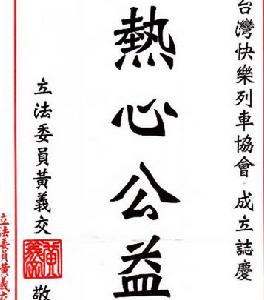 台灣快樂列車協會·成立誌慶
熱心公益
立法委員黃義交
敬
立法委員黃義交